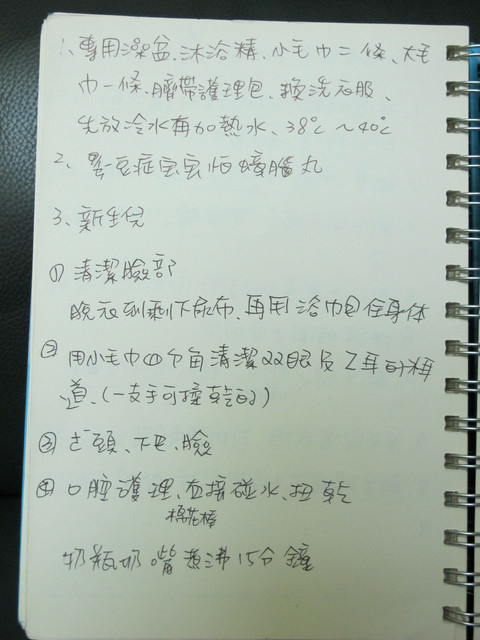 1、專用澡盆、沐浴精、小毛巾二條、大毛
巾一條、臍帶護理包、換洗衣服、
先放冷水再加熱水、38℃~40℃
2、蠶豆症宝宝怕蟑腦丸
3、新生兒
① 清潔臉部
脫衣到剩下尿布、再用浴巾包住身体
② 用小毛巾四个角清潔双眼及 耳的
道、(一支手可擰乾的)
③ 頭、下巴、臉
④ 口腔護理、直接碰水、扭乾
棉花棒
奶瓶奶嘴煮沸15分鐘